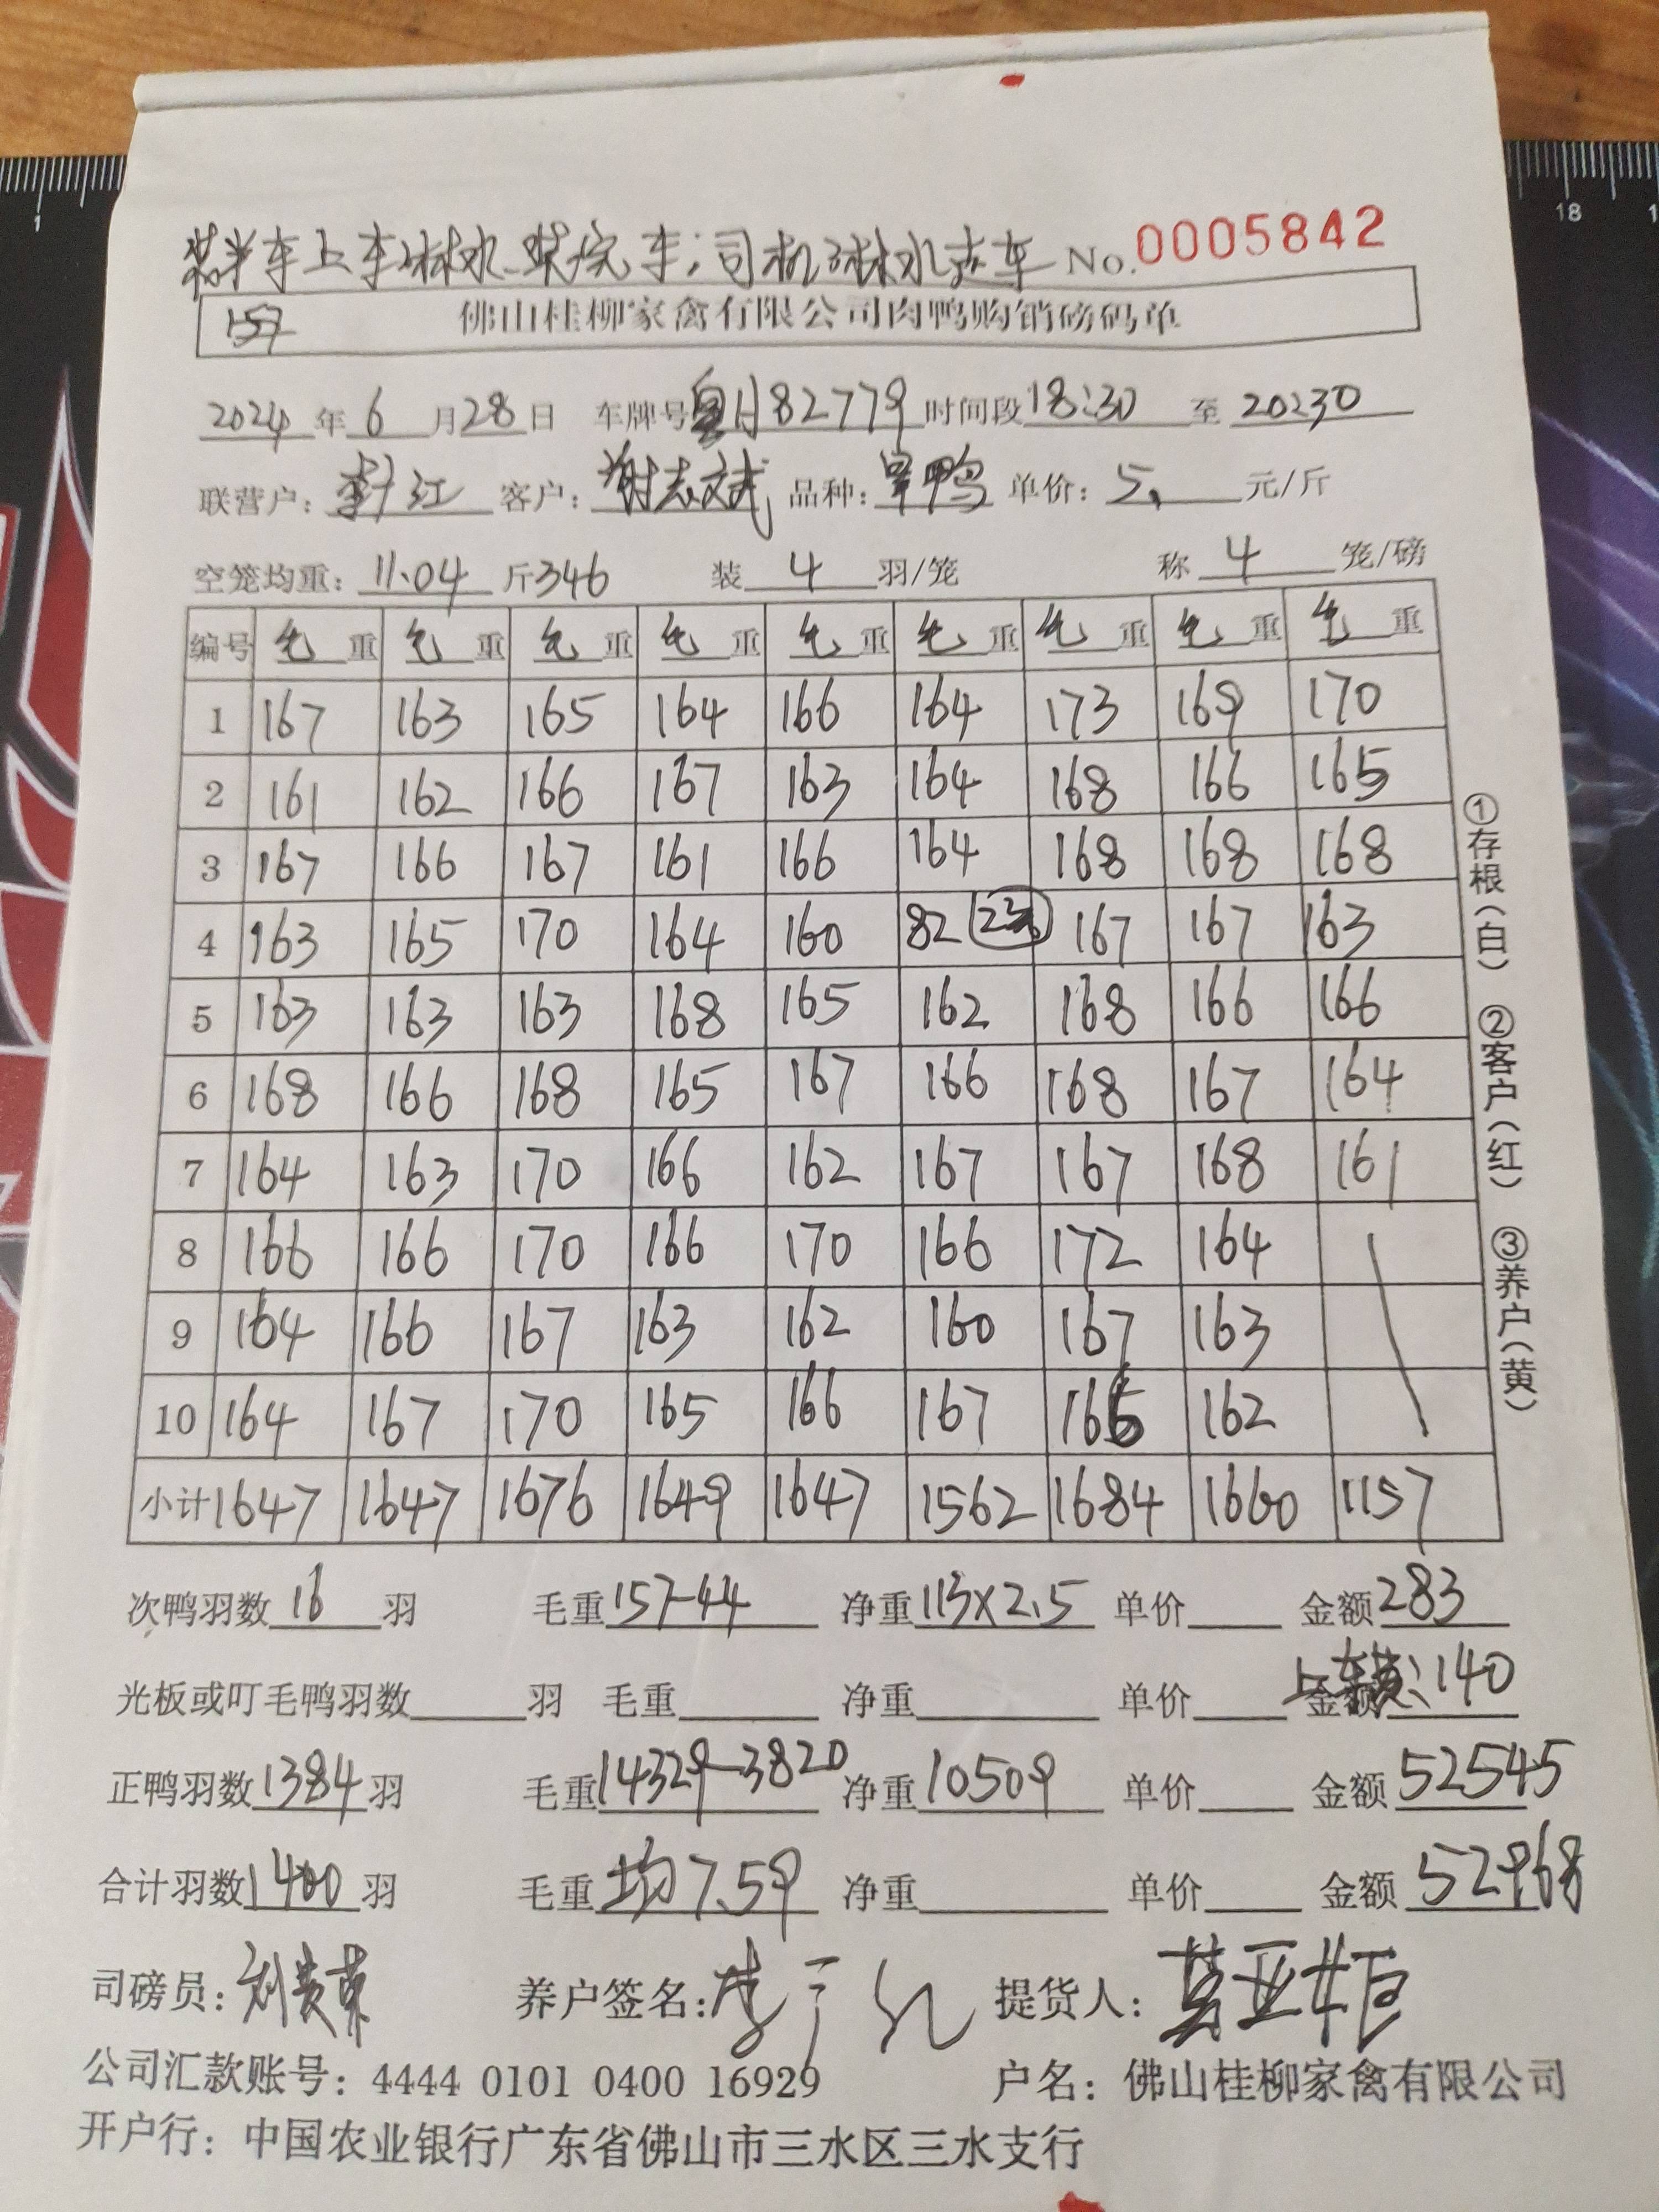 装半车上车淋水、装完车,司机淋水走车 No.0005842
佛山桂柳家禽有限公司肉鸭购销磅码单
2024年6月28日 车牌号粤J82779 时间段18:30至20:30
联营户: 江 客户:谢志斌 品种:旱鸭 单价:5. 元/斤
空笼均重:11.04斤346 装4羽/笼 称4笼/磅
编号 毛重 毛重 毛重 毛重 毛重 毛重 毛重 毛重 毛重
1 167 163 165 164 166 164 173 169 170
2 161 162 166 167 163 164 168 166 165
3 167 166 167 161 166 164 168 168 168
4 163 165 170 164 160 82 167 167 163
5 163 163 163 168 165 162 168 166 166
6 168 166 168 165 167 166 168 167 164
7 164 163 170 166 162 167 167 168 161
8 166 166 170 166 170 166 172 164
9 164 166 167 163 162 160 167 163
10 164 167 170 165 166 167 166 162
小计 1647 1647 1676 1649 1647 1562 1684 1660 1157
次鸭羽数16羽 毛重157-44 净重113×2.5 单价 金额283
光板或叮毛鸭羽数 羽 毛重 净重 单价 金额 上车费:140
正鸭羽数1384羽 毛重14329-3820 净重10509 单价 金额52545
合计羽数1400羽 毛重均7.59 净重 单价 金额52968
司磅员:刘贵荣 养户签名: 提货人:
公司汇款账号:4444 0101 0400 16929 户名:佛山桂柳家禽有限公司
开户行:中国农业银行广东省佛山市三水区三水支行
①存根(白) ②客户(红) ③养户(黄)
1
18